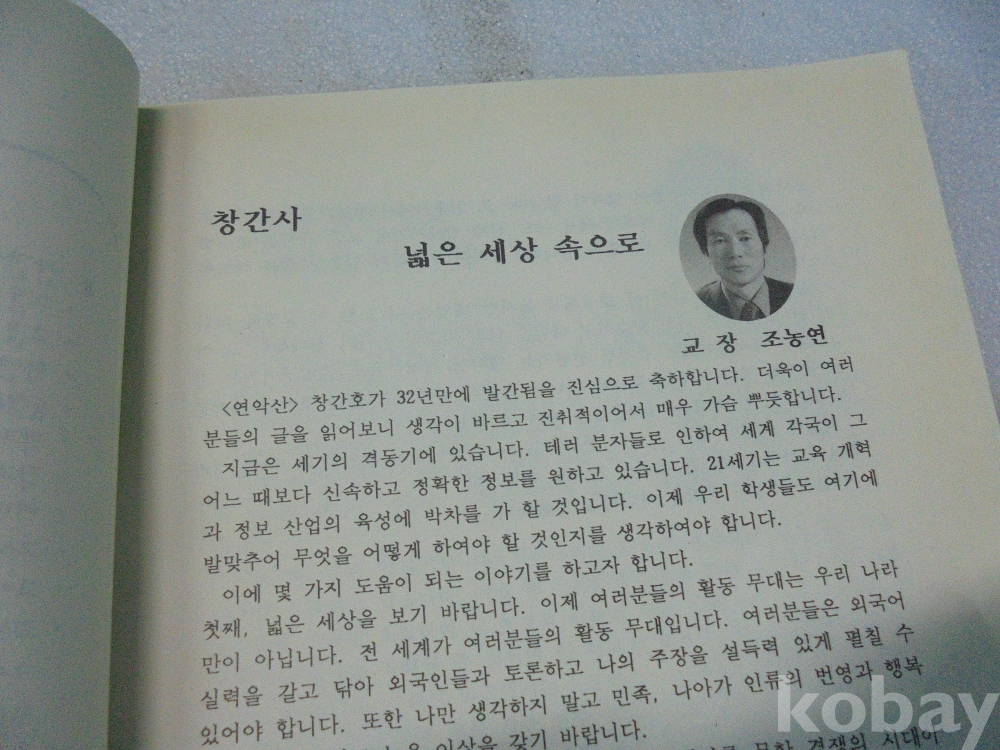 창간사
넓은 세상 속으로
교 장 조농연
〈연악산〉 창간호가 32년만에 발간됨을 진심으로 축하합니다. 더욱이 여러
분들의 글을 읽어보니 생각이 바르고 진취적이어서 매우 가슴 뿌듯합니다.
지금은 세기의 격동기에 있습니다. 테러 분자들로 인하여 세계 각국이 그
어느 때보다 신속하고 정확한 정보를 원하고 있습니다. 21세기는 교육 개혁
과 정보 산업의 육성에 박차를 가 할 것입니다. 이제 우리 학생들도 여기에
발맞추어 무엇을 어떻게 하여야 할 것인지를 생각하여야 합니다.
이에 몇 가지 도움이 되는 이야기를 하고자 합니다.
첫째, 넓은 세상을 보기 바랍니다. 이제 여러분들의 활동 무대는 우리 나라
만이 아닙니다. 전 세계가 여러분들의 활동 무대입니다. 여러분들은 외국어
실력을 갈고 닦아 외국인들과 토론하고 나의 주장을 설득력 있게 펼칠 수
있어야 합니다. 또한 나만 생각하지 말고 민족, 나아가 인류의 번영과 행복
이상을 갖기 바랍니다.
경쟁의 시대이
kobay